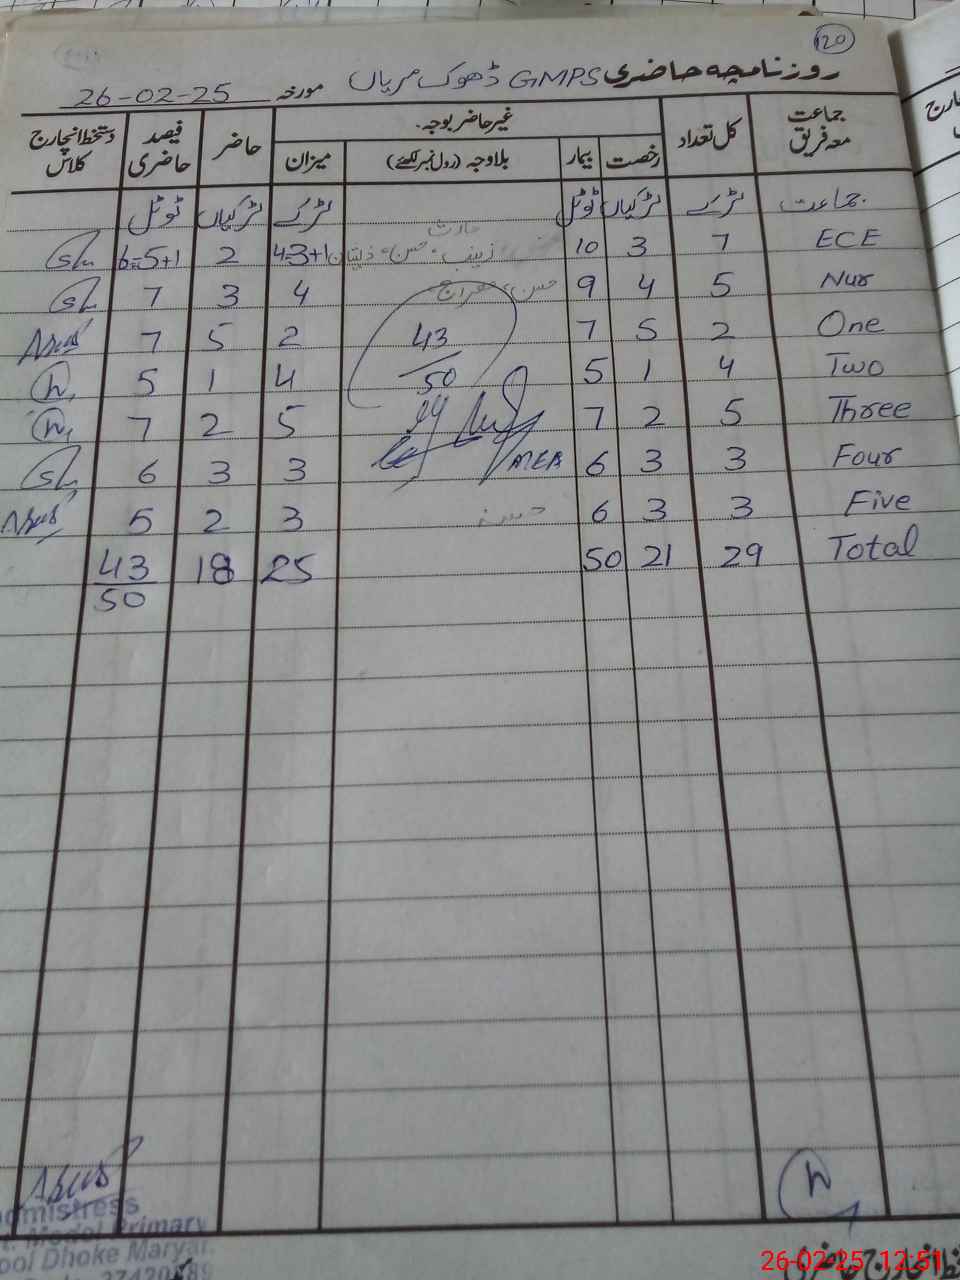 120
روزنامچہ حاضری GMPS ڈھوک مریاں
مورخہ 26-02-25
جماعت معہ فریق کل تعداد غیر حاضر بوجہ۔ حاضر فیصد حاضری دستخط انچارج کلاس
رخصت بیمار بلاوجہ (رول نمبر لکھئے) میزان
جماعت لڑکے لڑکیاں ٹوٹل لڑکے لڑکیاں ٹوٹل
حارث
ECE 7 3 10 زینب، حسن، 4=3+1 2 6=5+1
Nur 5 4 9 4 3 7
One 2 5 7 43 2 5 7
Two 4 1 5 50 4 1 5
Three 5 2 7 5 2 7
Four 3 3 6 AEA 3 3 6
Five 3 3 6 3 2 5
Total 29 21 50 25 18 43
50
dmistress
t. Model Primary
ool Dhoke Maryan
37420189
26-02-25 12:51